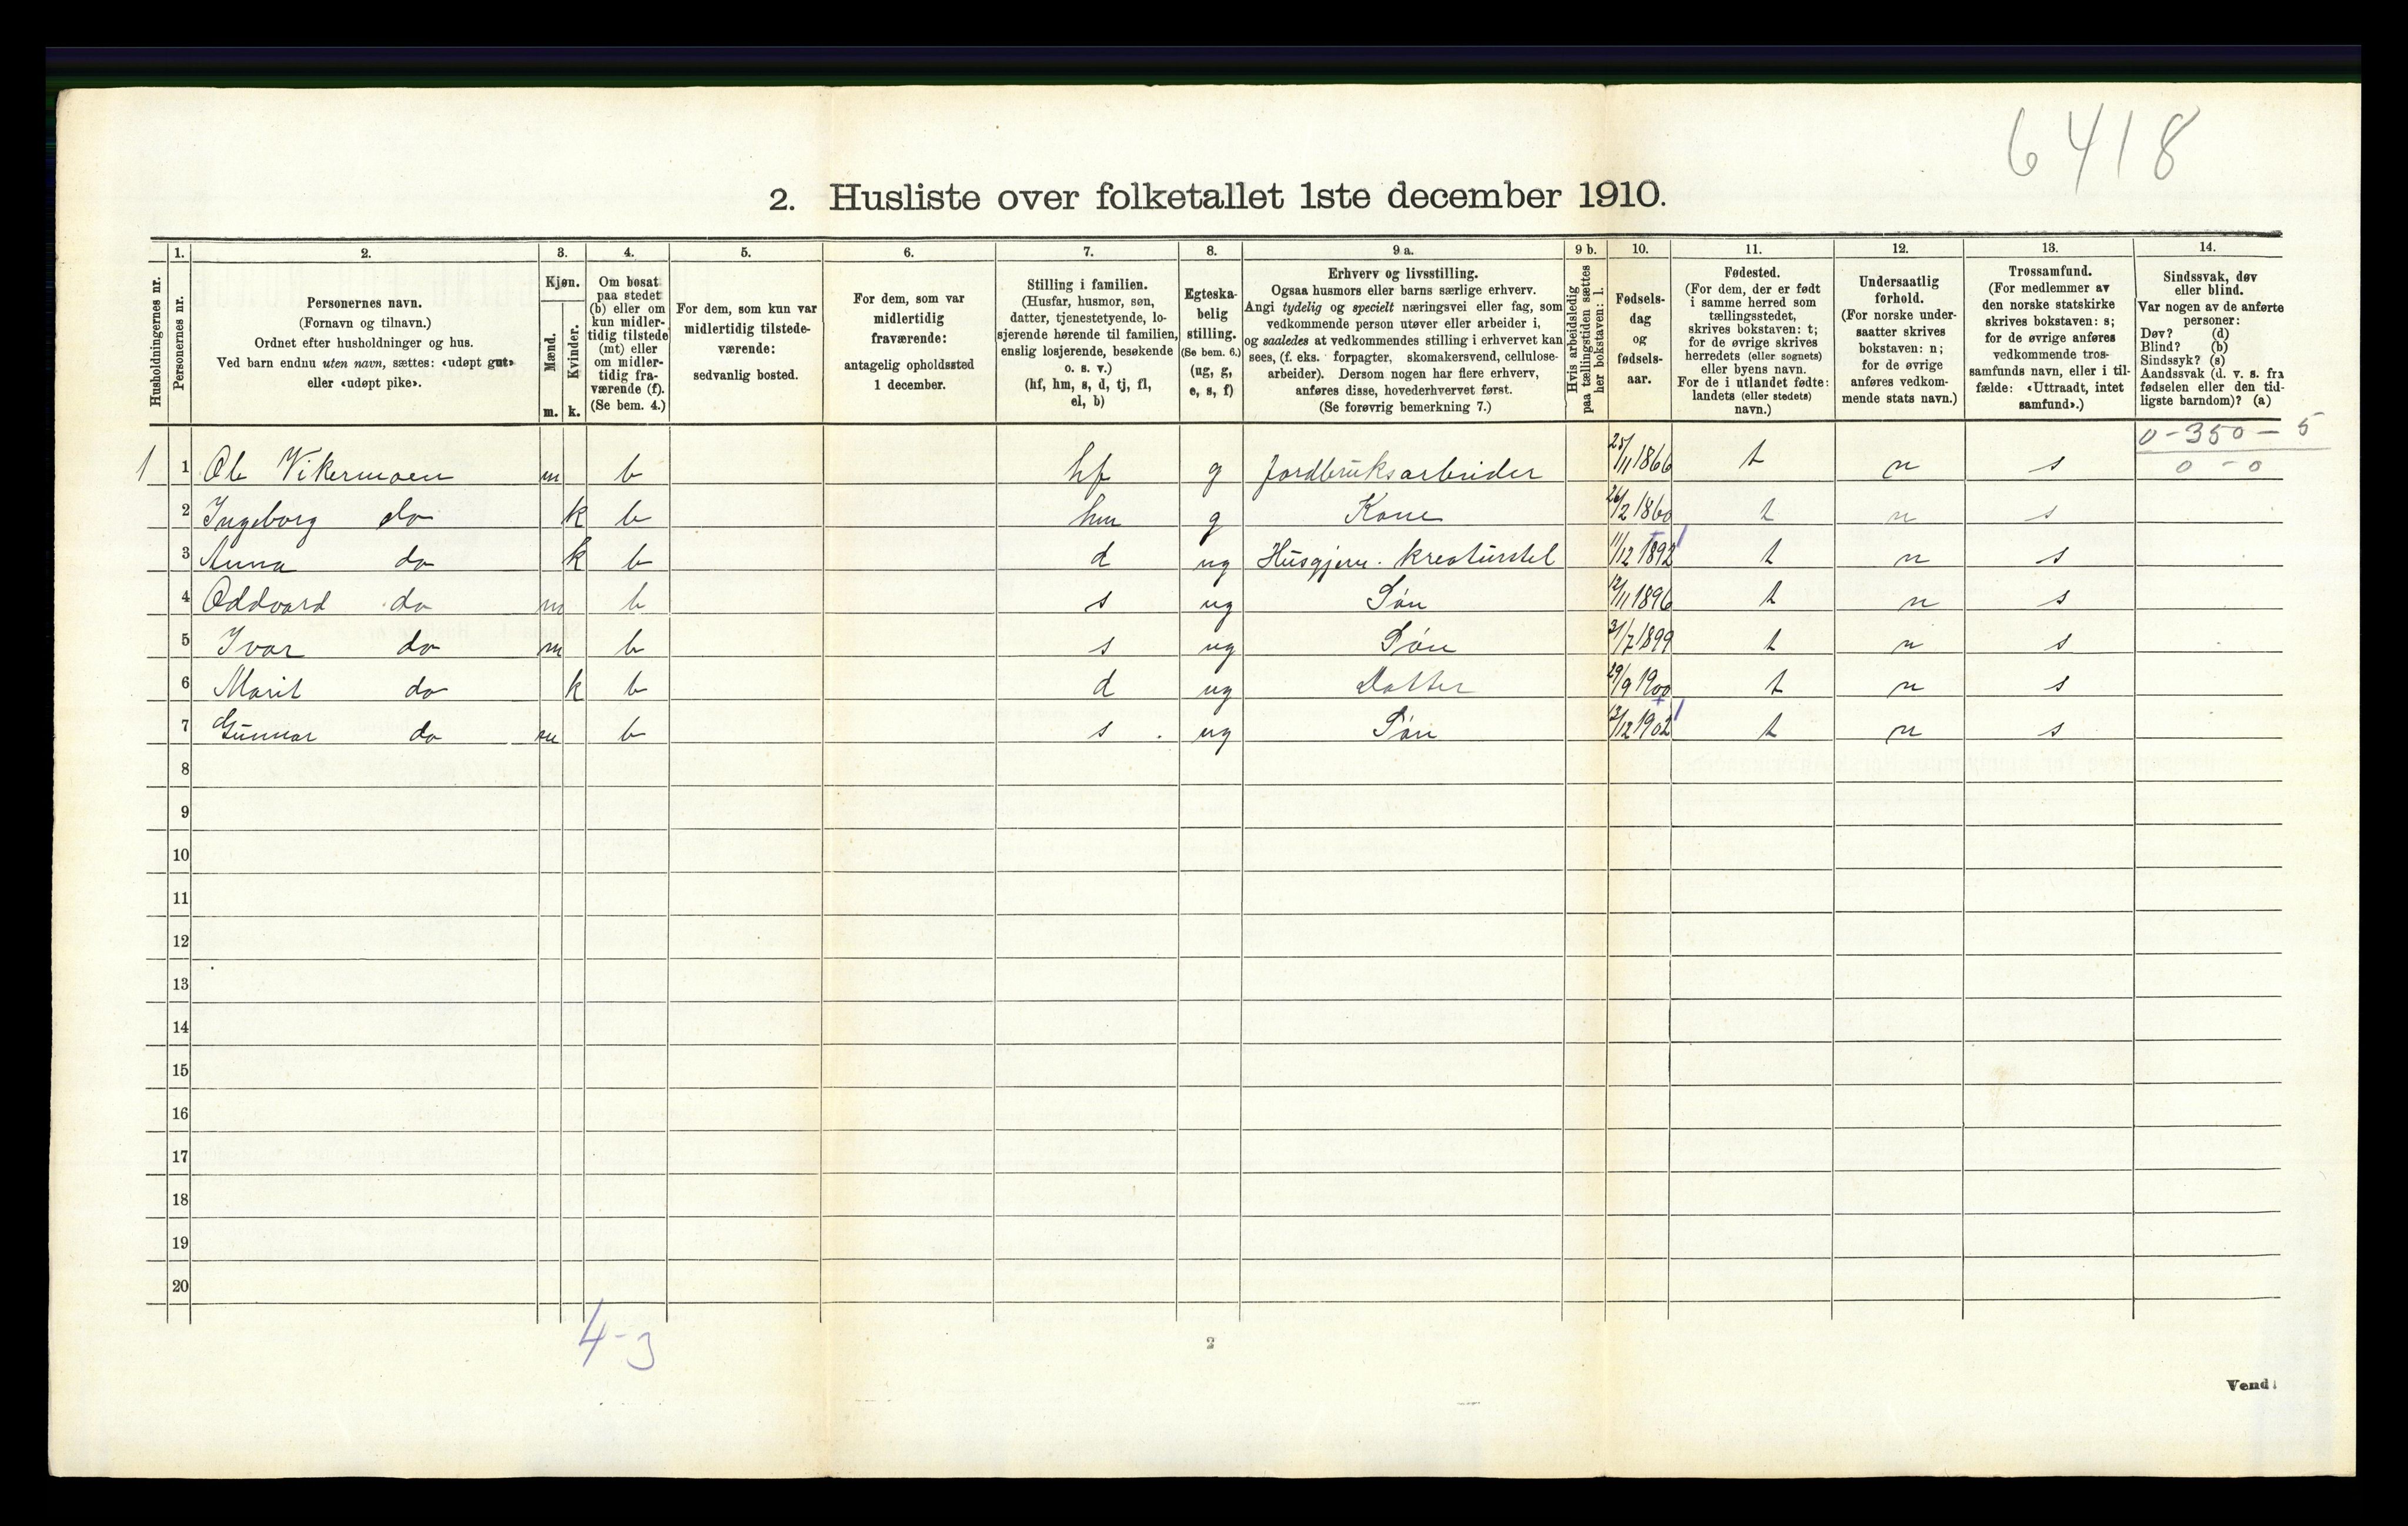 6418
2. Husliste over folketallet 1ste december 1910.
Husholdningernes nr.
1.
Personernes nr.
2.
Personernes navn.
(Fornavn og tilnavn.)
Ordnet efter husholdninger og hus.
Ved barn endnu uten navn, sættes: «udøpt gut»
eller «udøpt pike».
3.
Kjøn.
Mænd.
m.
Kvinder.
k.
4.
Om bosat
paa stedet
(b) eller om
kun midler-
tidig tilstede
(mt) eller
om midler-
tidig fra-
værende (f).
(Se bem. 4.)
5.
For dem, som kun var
midlertidig tilstede-
værende:
sedvanlig bosted.
6.
For dem, som var
midlertidig
fraværende:
antagelig opholdssted
1 december.
7.
Stilling i familien.
(Husfar, husmor, søn,
datter, tjenestetyende, lo-
sjerende hørende til familien,
enslig losjerende, besøkende
o. s. v.)
(hf, hm, s, d, tj, fl,
el, b)
8.
Egteska-
belig
stilling.
(Se bem. 6.)
(ug, g,
e, s, f)
9 a.
Erhverv og livsstilling.
Ogsaa husmors eller barns særlige erhverv.
Angi tydelig og specielt næringsvei eller fag, som
vedkommende person utøver eller arbeider i,
og saaledes at vedkommendes stilling i erhvervet kan
sees, (f. eks. forpagter, skomakersvend, cellulose-
arbeider). Dersom nogen har flere erhverv,
anføres disse, hovederhvervet først.
(Se forøvrig bemerkning 7.)
9 b.
Hvis arbeidsledig
paa tællingstiden sættes
her bokstaven: l.
10.
Fødsels-
dag
og
fødsels-
aar.
11.
Fødested.
(For dem, der er født
i samme herred som
tællingsstedet,
skrives bokstaven: t;
for de øvrige skrives
herredets (eller sognets)
eller byens navn.
For de i utlandet fødte:
landets (eller stedets)
navn.)
12.
Undersaatlig
forhold.
(For norske under-
saatter skrives
bokstaven: n;
for de øvrige
anføres vedkom-
mende stats navn.)
13.
Trossamfund.
(For medlemmer av
den norske statskirke
skrives bokstaven: s;
for de øvrige anføres
vedkommende tros-
samfunds navn, eller i til-
fælde: «Uttraadt, intet
samfund».)
14.
Sindssvak, døv
eller blind.
Var nogen av de anførte
personer:
Døv? (d)
Blind? (b)
Sindssyk? (s)
Aandssvak (d. v. s. fra
fødselen eller den tid-
ligste barndom)? (a)
0-350-5
0-0
1 1 Ole Vikermoen m b hf g Jordbruksarbeider 25/11 1866 t n s
2 Ingeborg do k b hm g Kone 26/2 1860 t n s
3 Anna do k b d ug Husgjern. kreaturstel 11/12 1892 t n s
4 Oddvard do m b s ug Søn 12/11 1896 t n s
5 Ivar do m b s ug Søn 31/7 1899 t n s
6 Marit do k b d ug Datter 29/9 1900 t n s
7 Gunnar do m b s ug Søn 13/12 1902 t n s
8
9
10
11
12
13
14
15
16
17
18
19
20
4-3
2
Vend!